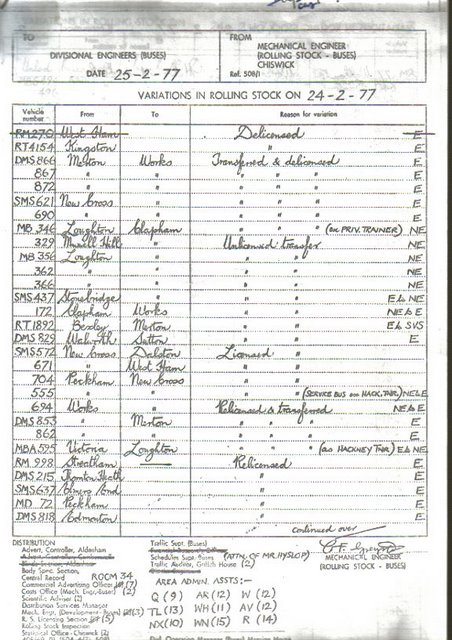 TO
DIVISIONAL ENGINEERS (BUSES)
DATE 25-2-77
FROM
MECHANICAL ENGINEER
(ROLLING STOCK - BUSES)
CHISWICK
Ref. 508/1
VARIATIONS IN ROLLING STOCK ON 24-2-77
Vehicle number From To Reason for variation
RM270 West Ham Delicensed E
RT4154 Kingston " E
DMS866 Merton Works Transferred & delicensed E
867 " " " " " E
872 " " " " " E
SMS621 New Cross " " " " E
690 " " " " " E
MB 346 Loughton Clapham " " " (on PRIV. TRAINER) NE
329 Muswell Hill " Unlicensed transfer NE
MB 356 Loughton " " " NE
362 " " " " NE
366 " " " " NE
SMS437 Stonebridge " " " E to NE
172 Clapham Works " " NE to E
RT1892 Bexley Merton " " E to SVS
DMS829 Walworth Sutton " " E
SMS572 New Cross Dalston Licensed "
671 " West Ham " "
704 Peckham New Cross " "
555 " " " " (SERVICE BUS HACK. TNR) NE to E
694 Works " Relicensed & transferred NE to E
DMS 853 " Merton " " " E
862 " " " " " E
MBA595 Victoria Loughton " " " (as HACKNEY TNR) E to NE
RM 998 Streatham Relicensed E
DMS215 Thornton Heath " E
SMS637 Elmers End " E
MD 72 Peckham " E
DMS 818 Edmonton " E
continued over
DISTRIBUTION
Advert. Controller, Aldenham
Body Spng. Section,
Central Record ROOM 34
Commercial Advertising Officer (7)
Costs Office (Mech. Engr.-Buses) (2)
Scientific Adviser (2)
Distribution Services Manager
Mech. Engr. (Development - Buses) (3)
R. S. Licensing Section (5)
Rolling Stock Inspection
Statistical Office - Chiswick (2)
Traffic Supt. (Buses)
Schedules Supt. (Buses) (ATTN. OF MR. HYSLOP)
Traffic Advisor, Griffith House (2)
AREA ADMN. ASSTS:-
Q (9) AR (12) W (12)
TL (13) WH (11) AV (12)
NX (10) WN (15) R (14)
MECHANICAL ENGINEER
(ROLLING STOCK - BUSES)